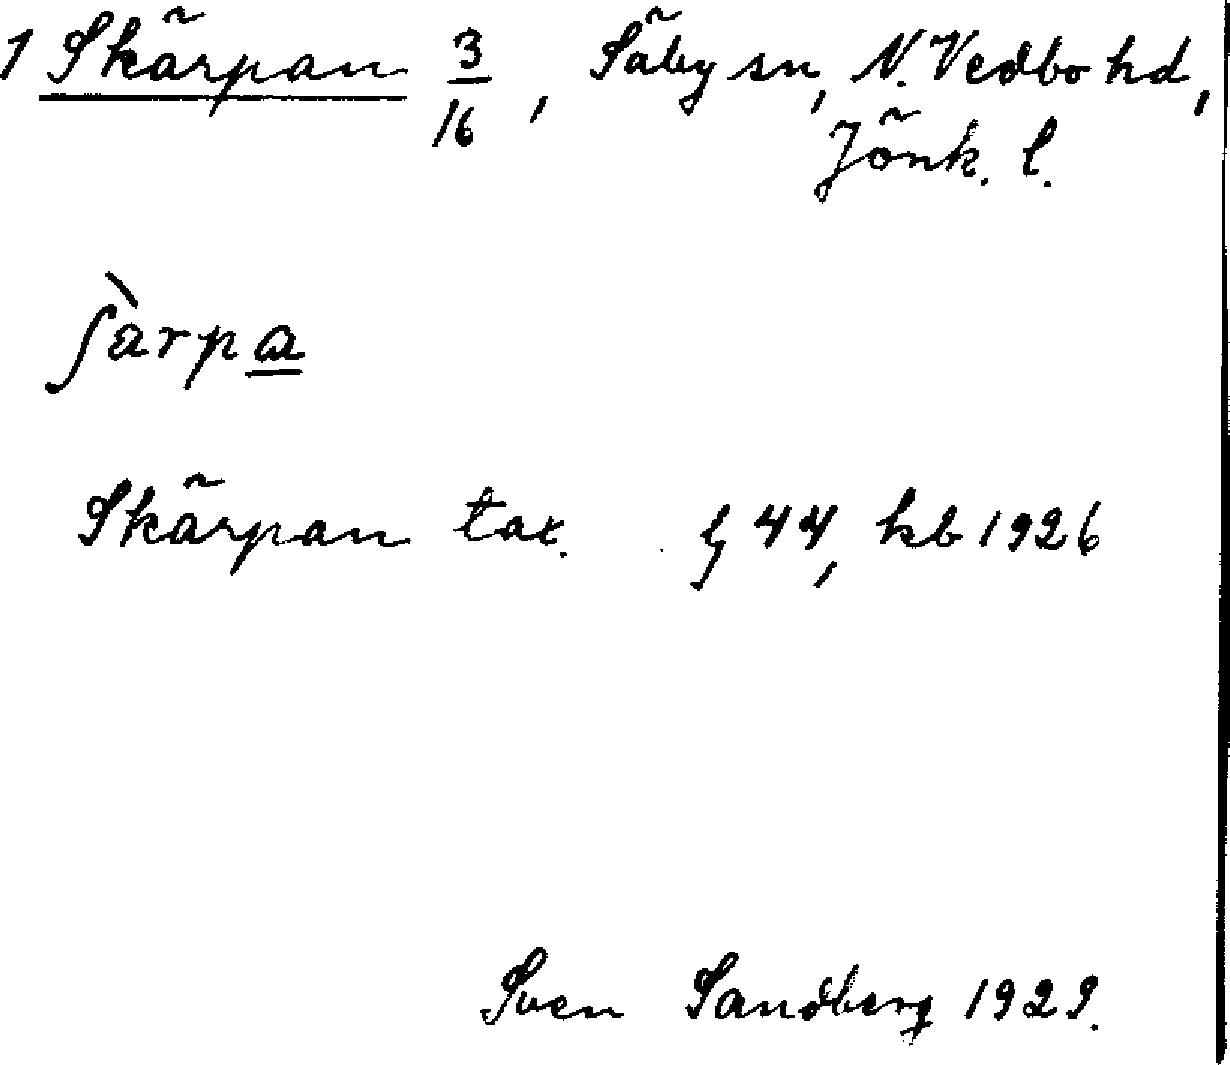 1 Skärpan 3/16, Säby sn, N. Vedbo hd,
Jönk. l.
ʃàrpa
Skärpan tax. ɧ 44, kb 1926
Sven Sandberg 1929.